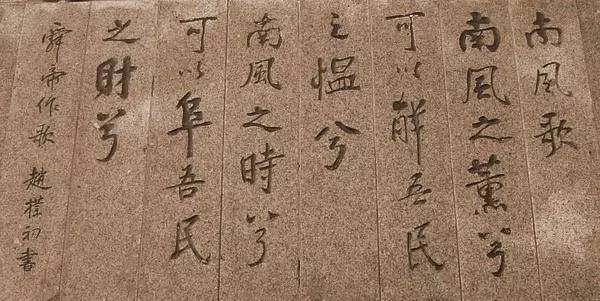 南风歌
南風之薰兮
可以解吾民
之愠兮
南風之時兮
可以阜吾民
之財兮
舜帝作歌 趙樸初書